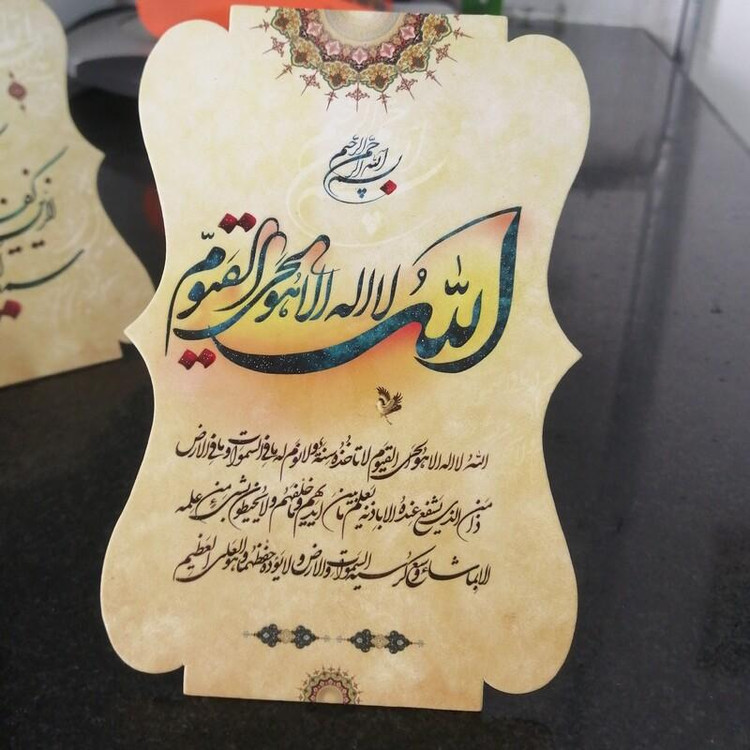 بسم الله الرحمن الرحیم
الله لا اله الا هو الحی القیوم
الله لا اله الا هو الحی القیوم لا تاخذه سنة ولا نوم له ما فی السموات و ما فی الارض
ذا الذی یشفع عنده الا باذنه یعلم ما بین ایدیهم و ما خلفهم ولا یحیطون بشیء من علمه
الا بما شاء وسع کرسیه السموات والارض ولا یؤده حفظهما وهو العلی العظیم